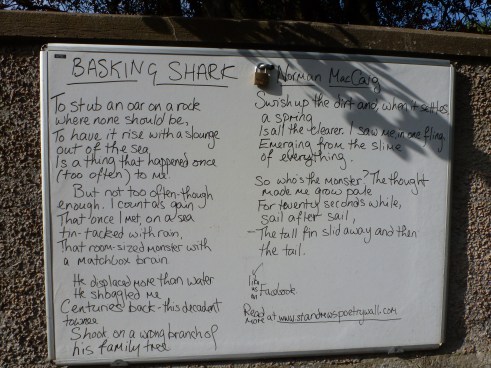 BASKING SHARK
To stub an oar on a rock
where none should be,
To have it rise with a slounge
out of the sea
Is a thing that happened once
(too often) to me.
But not too often - though
enough. I count as gain
That once I met, on a sea
tin-tacked with rain,
That room-sized monster with
a matchbox brain.
He displaced more than water
He shoggled me
Centuries back - this decadent
townee
Shook on a wrong branch of
his family tree.
Norman MacCaig
Swish up the dirt and, when it settles
a spring
Is all the clearer. I saw me in one fling
Emerging from the slime
of everything.
So who's the monster? The thought
made me grow pale
For twenty seconds while,
sail after sail,
- The tall fin slid away and then
the tail.
like
us
on
Facebook.
Read
more at www.standrewspoetrywall.com